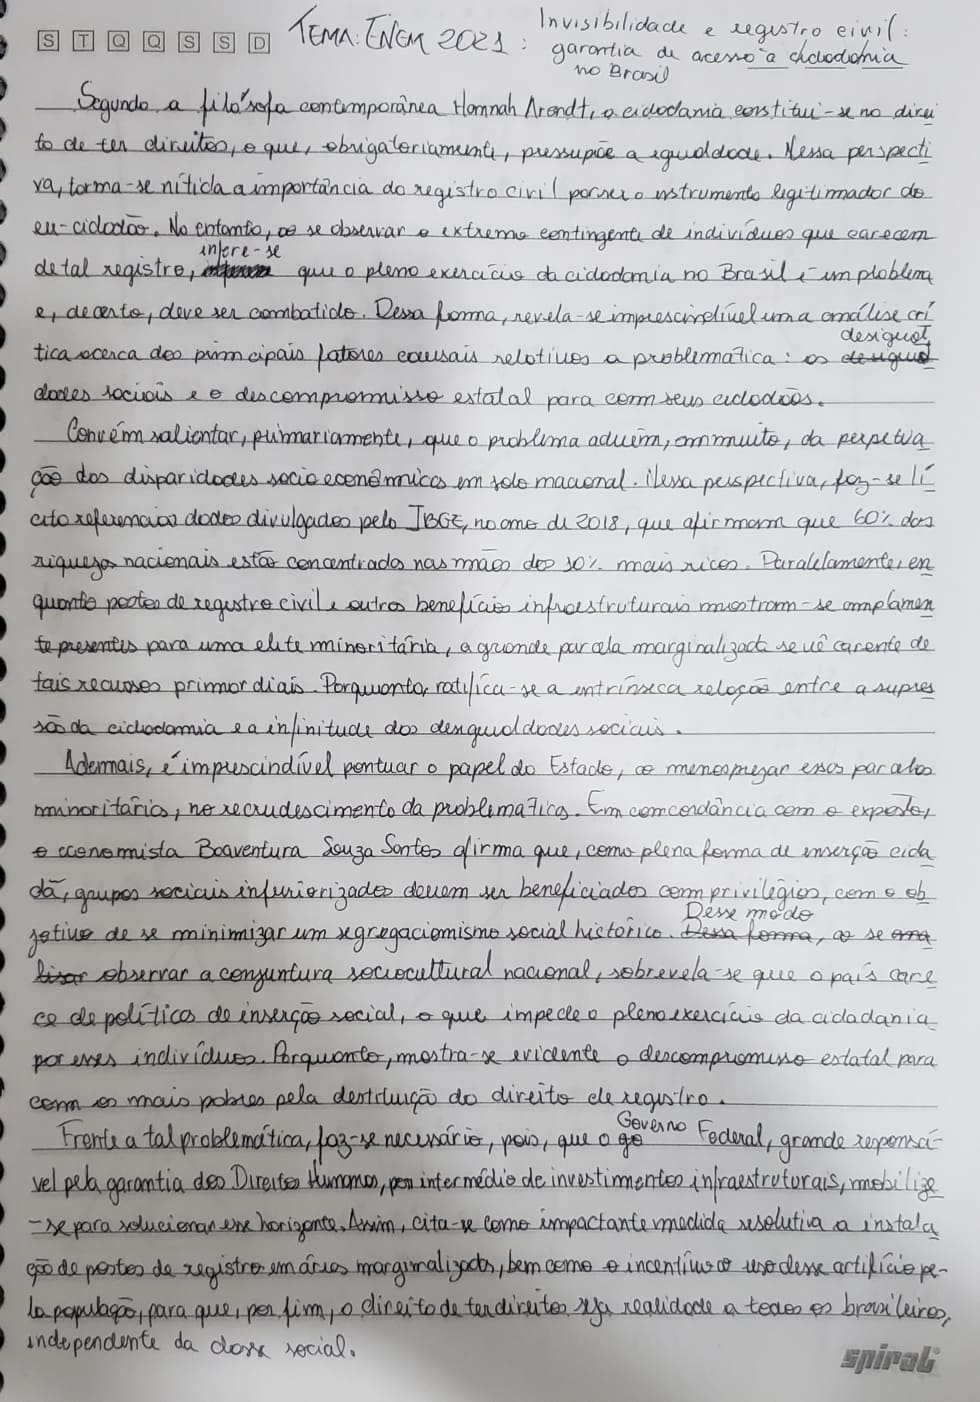 S T Q Q S S D
TEMA: ENEM 2021: Invisibilidade e registro civil:
garantia de acesso à cidadania
no Brasil
Segundo a filósofa contemporânea Hannah Arendt, a cidadania constitui-se no direi
to de ter direitos, o que, obrigatoriamente, pressupõe a igualdade. Nessa perspecti
va, torna-se nítida a importância do registro civil por ser o instrumento legitimador do
eu-cidadão. No entanto, ao se observar o extremo contingente de indivíduos que carecem
infere-se
de tal registro, que o pleno exercício da cidadania no Brasil é um problema
e, decerto, deve ser combatido. Dessa forma, revela-se imprescindível uma análise crí
desigual
tica acerca dos principais fatores causais relativos a problemática: as desigual
dades sociais e o descompromisso estatal para com seus cidadãos.
Convém salientar, primariamente, que o problema advém, em muito, da perpetua
ção das disparidades socioeconômicas em solo nacional. Nessa perspectiva, faz-se lí
cito referenciar dados divulgados pelo IBGE, no ano de 2018, que afirmam que 60% das
riquezas nacionais estão concentradas nas mãos dos 10% mais ricos. Paralelamente, en
quanto postos de registro civil e outros benefícios infraestruturais mostram-se amplamen
te presentes para uma elite minoritária, a grande parcela marginalizada se vê carente de
tais recursos primordiais. Porquanto, ratifica-se a entrínseca relação entre a supres
são da cidadania e a infinitude das desigualdades sociais.
Ademais, é imprescindível pontuar o papel do Estado, ao menosprezar essas parcelas
minoritárias, no recrudescimento da problemática. Em concordância com o exposto,
o economista Boaventura Souza Santos afirma que, como plena forma de inserção cida
dã, grupos sociais inferiorizados devem ser beneficiados com privilégios, com o ob
Desse modo
jetivo de se minimizar um segregacionismo social histórico. Dessa forma, ao se ana
lisar observar a conjuntura sociocultural nacional, sobreleva-se que o país care
ce de políticas de inserção social, o que impede o pleno exercício da cidadania
por esses indivíduos. Porquanto, mostra-se evidente o descompromisso estatal para
com os mais pobres pela destituição do direito de registro.
Governo
Frente a tal problemática, faz-se necessário, pois, que o go Federal, grande responsá-
vel pela garantia dos Direitos Humanos, por intermédio de investimentos infraestruturais, mobilize
-se para solucionar esse horizonte. Assim, cita-se como impactante medida resolutiva a instala
ção de postos de registro em áreas marginalizadas, bem como o incentivo ao uso desse artifício pe-
la população, para que, por fim, o direito de ter direitos seja realidade a todos os brasileiros,
independente da classe social.
spiral